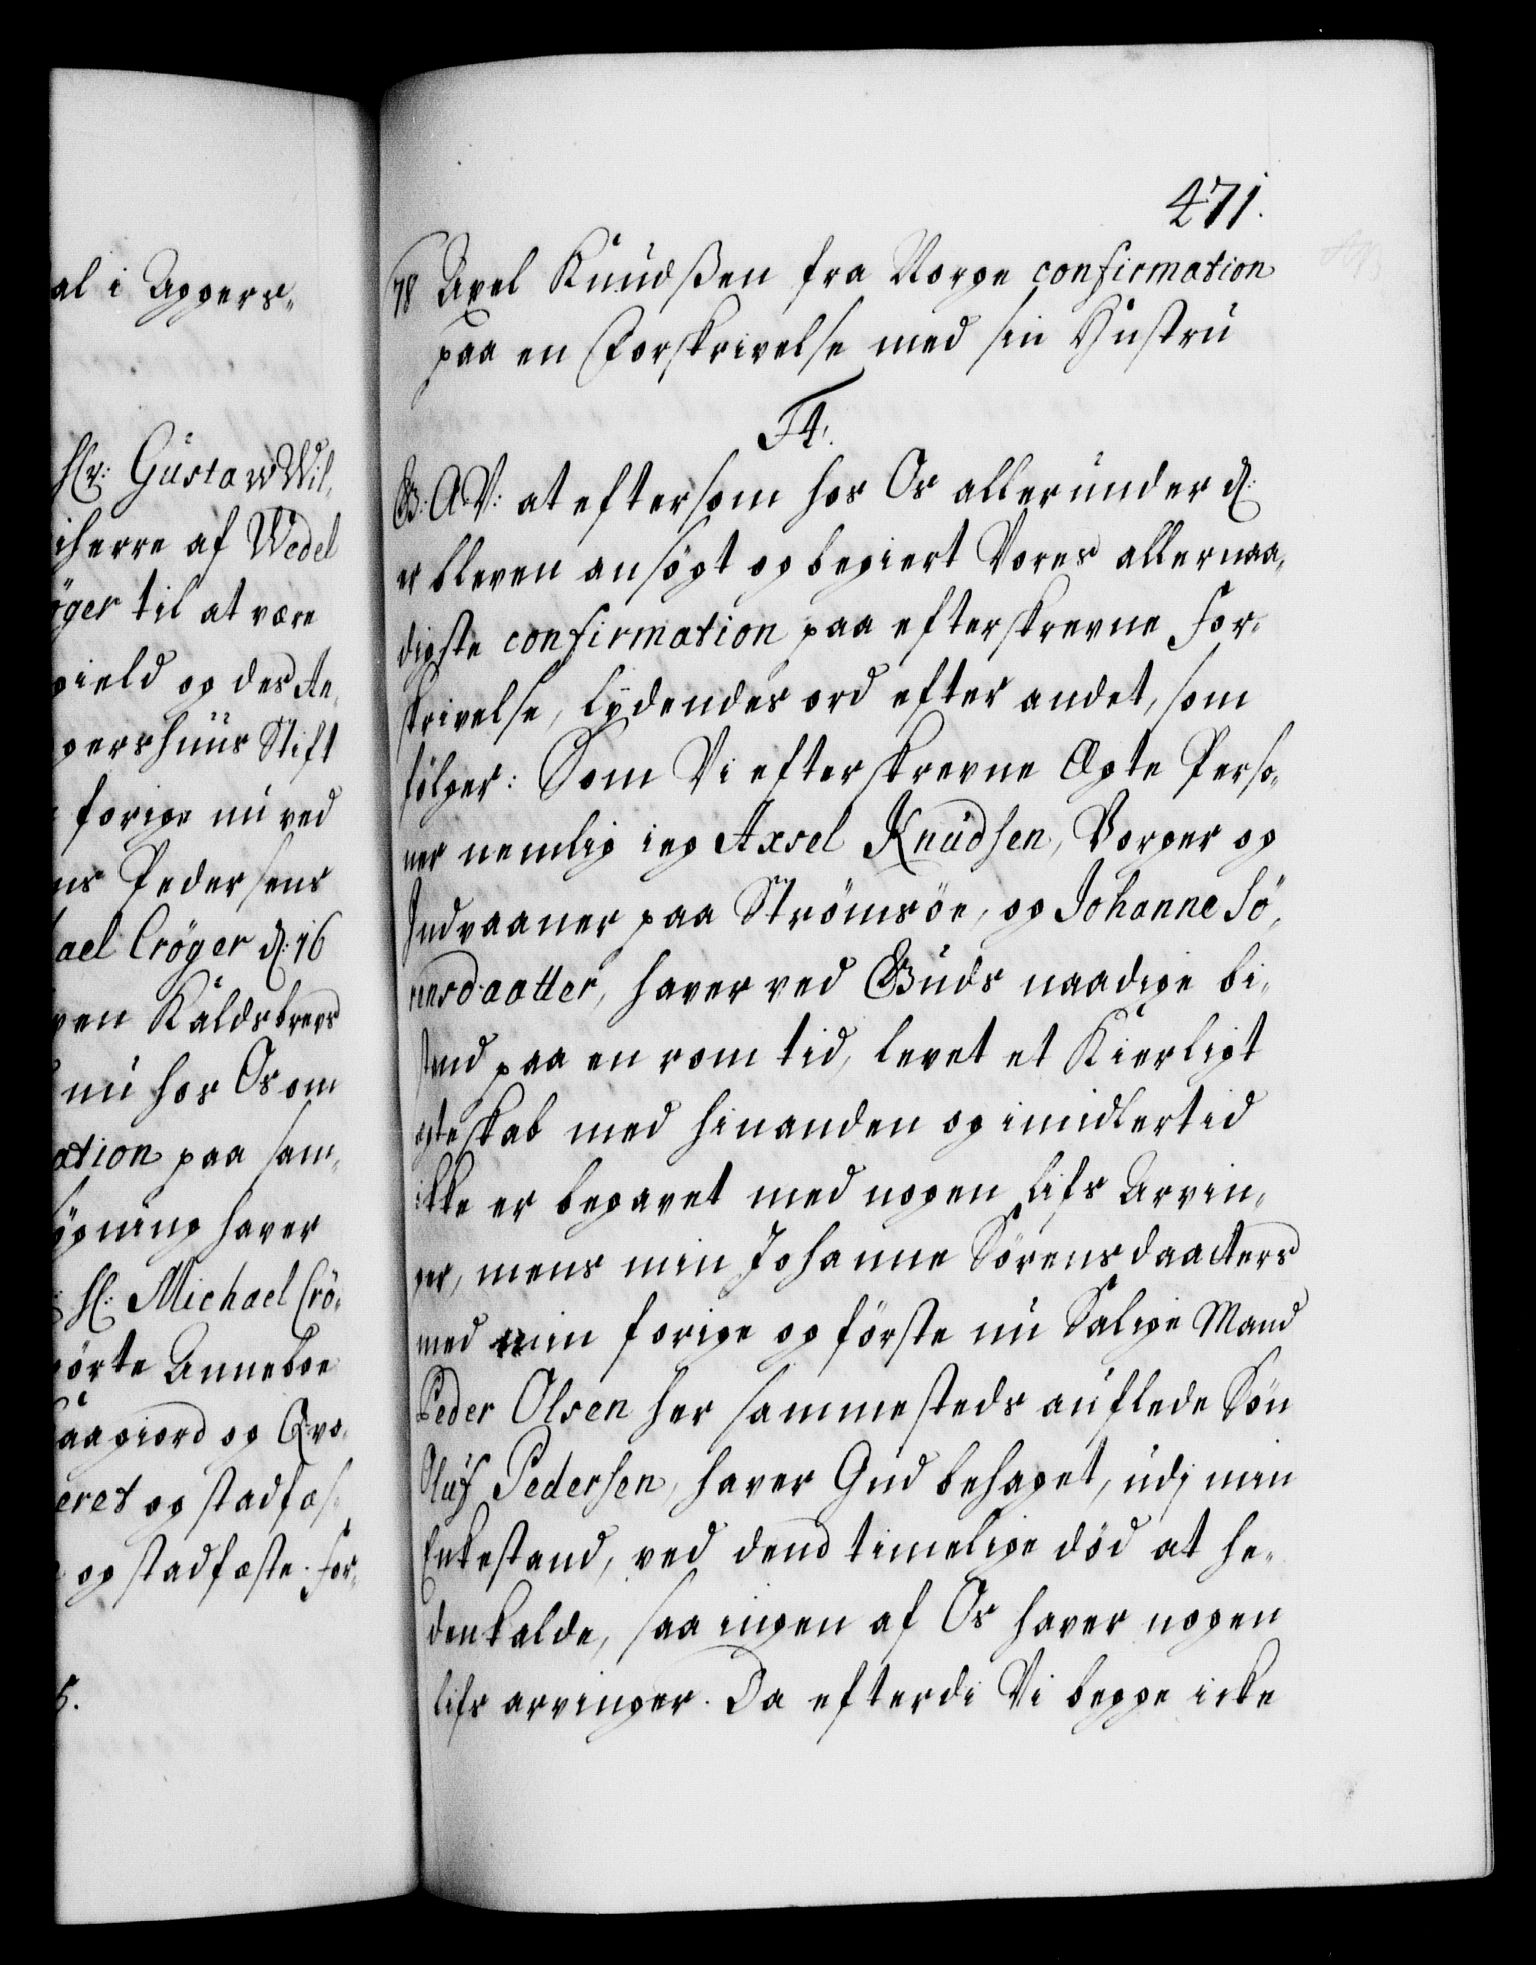 al i Aggers-
Hr: Gustaw Wil-
iherre af Wedel
öger til at være
gield og des An-
gershuus Stift
forige nu ved
ns Pedersens
ael Cröger d: 16
ven Kaldsbrevs
nu hos Os om
ation paa sam-
ygning haver
H: Michael Crö-
hörte Anneboe
aagiord og Qvo-
eret og stadfæs-
og stadfæste. For-
5.
471.
78 Axel Knudßen fra Norge confirmation
paa en Forskrivelse med sin Hustru
F4.
G. A V: at eftersom hos Os allerunder d:
er bleven ansögt og begiert Vores allernaa-
digste confirmation paa efterskrevne For-
skrivelse, lydendes ord efter andet, som
fölger: Som Vi efterskrevne Ægte Perso-
ner nemlig ieg Axsel Knudsen, Borger og
Indvaaner paa Strömsöe, og Johanne Sö-
rensdaatter, haver ved Guds naadige bi-
stand paa en rom tid, levet et Kierligt
ægteskab med hinanden og imidlertid
ikke er begavet med nogen Lifs Arvin-
ger, mens min Johanne Sörensdaatters
med min forige og förste nu Salige Mand
Peder Olsen her sammesteds auflede Sön
Oluf Pedersen, haver Gud behaget, udj min
Enkestand, ved dend timelige död at he-
denkalde, saa ingen af Os haver nogen
lifs arvinger. Da efterdi Vi begge icke